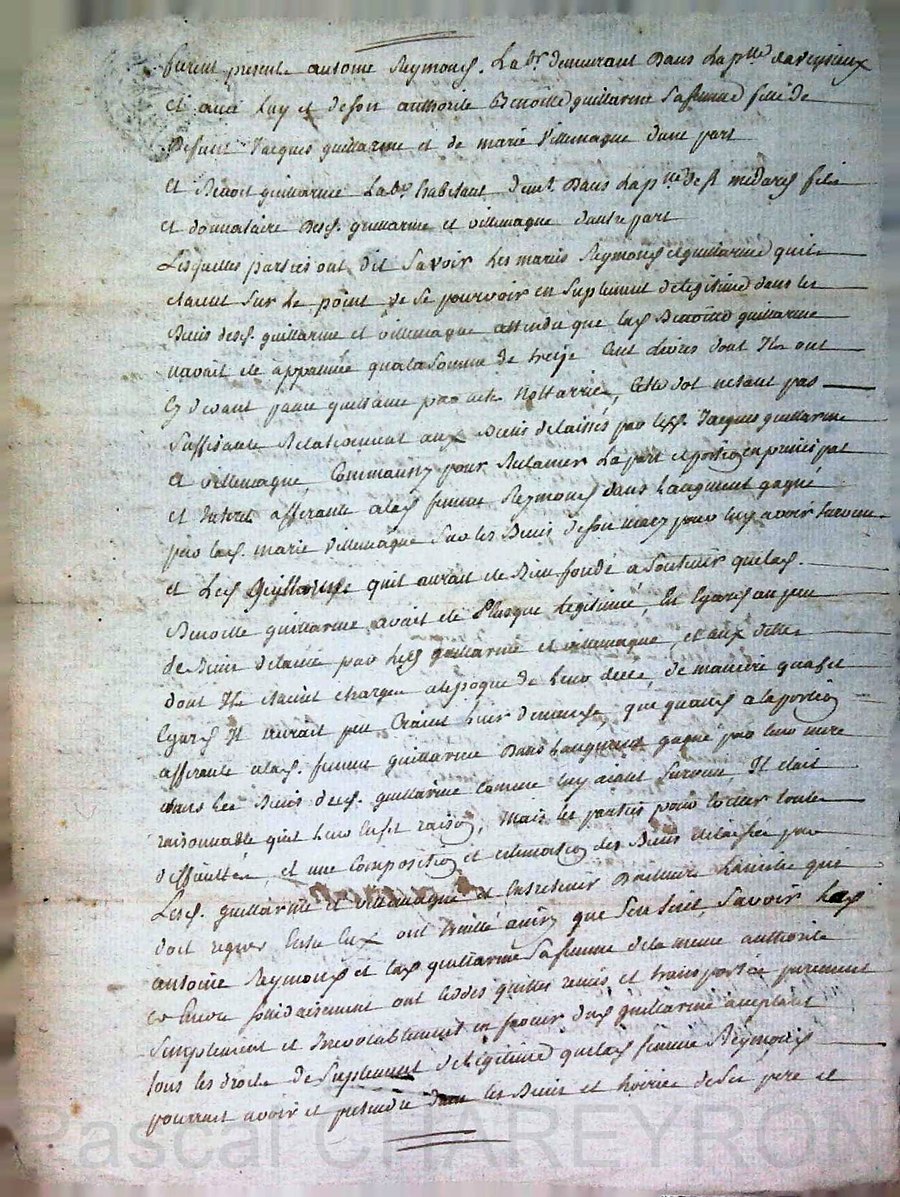 furent present antoine Reymond. Lab.r demeurant dans la p.sse
et avec luy et de son authorité Benoitte guillarme sa femme fille de
deffunt Jacques guillarme et de marie villemagne dune part
Et Benoit guillarme Lab.r habitant dans la p.sse de st medard fils
et donnataire desd. guillarme et villemagne dautre part
Lesquelles parties ont dit savoir les maries Reymond et guillarme quils
etaient sur le point de se pourvoir en suplement de legitime dans les
Biens desd. guillarme et villemagne attendu que lad. Benoitte guillarme
navait ete appannée qua la somme de treize Cent livres dont Ils ont
cy devant passé quittance par acte Nottarrié, Cette dot netant pas
suffisante Relativement aux Biens delaissés par lesd. Jacques guillarme
et villemagne, Comme aussy pour Reclamer La part et portion
et affirante a lad. femme Reymond dans Laugment gagné
par lad. marie villemagne sur les Biens de son mary pour luy avoir survecu
et Led. Guillarme quil aurait ete Bien fondé a soutenir que lad.
Benoitte guillarme avait ete Plusque legitimée, Eu Egard au peu
de Biens delaissé par lesd. guillarme et villemagne, et aux dettes
dont Ils etaient chargés a lepoque de leur deces, de maniere qua cet
Egard Il aurait peu Craint leur demande, que quand a la portion
affirante a lad. femme guillarme dans Laugment gagné par leur mere
dans les Biens dud. guillarme comme luy aiant survecu, Il etait
raisonnable quil leur en fit raison, Mais les parties pour eviter toutes
difficultés, et une Composition et estimation des Biens delaissés par
Lesd. guillarme et villemagne et entretenir lunion et la amitié que
doit regner Entre Eux ont traitté ainsy que sensuit, savoir led.
antoine Reymond et lad. guillarme sa femme de la meme authorité
ce faire solidairement ont Cedés quittés remis et transportés purement
simplement et Irrevocablement en faveur dud. guillarme acceptant
tous les droits de suplement de legitime que lad. femme Reymond
pourrait avoir et pretendre dans les Biens et hoirie de ses pere et
Pascal CHAREYRON